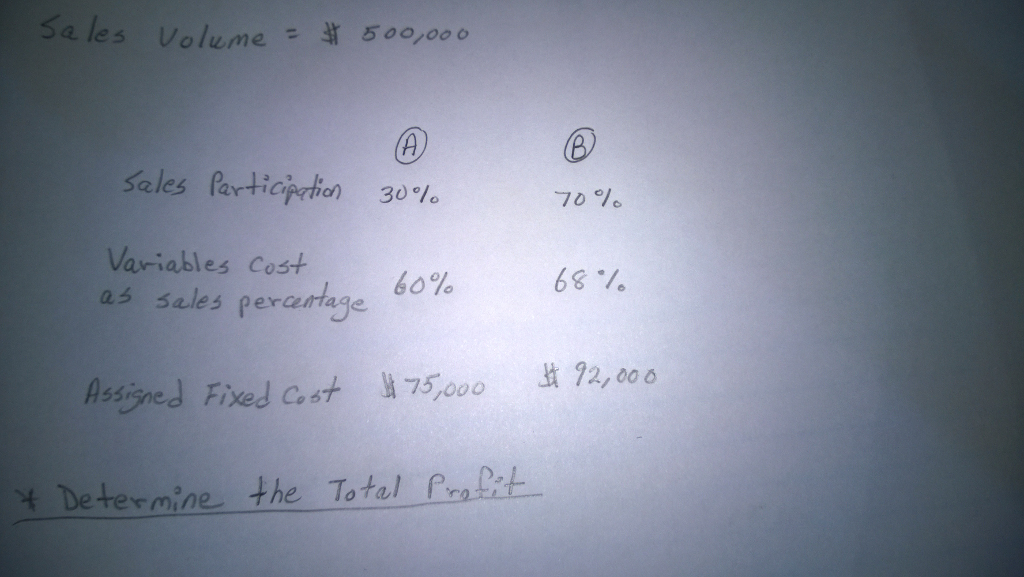 Sales Volume = $ 500,000
A B
Sales Participation 30% 70%
Variables Cost
as sales percentage 60% 68%
Assigned Fixed Cost $ 75,000 $ 92,000
* Determine the Total Profit